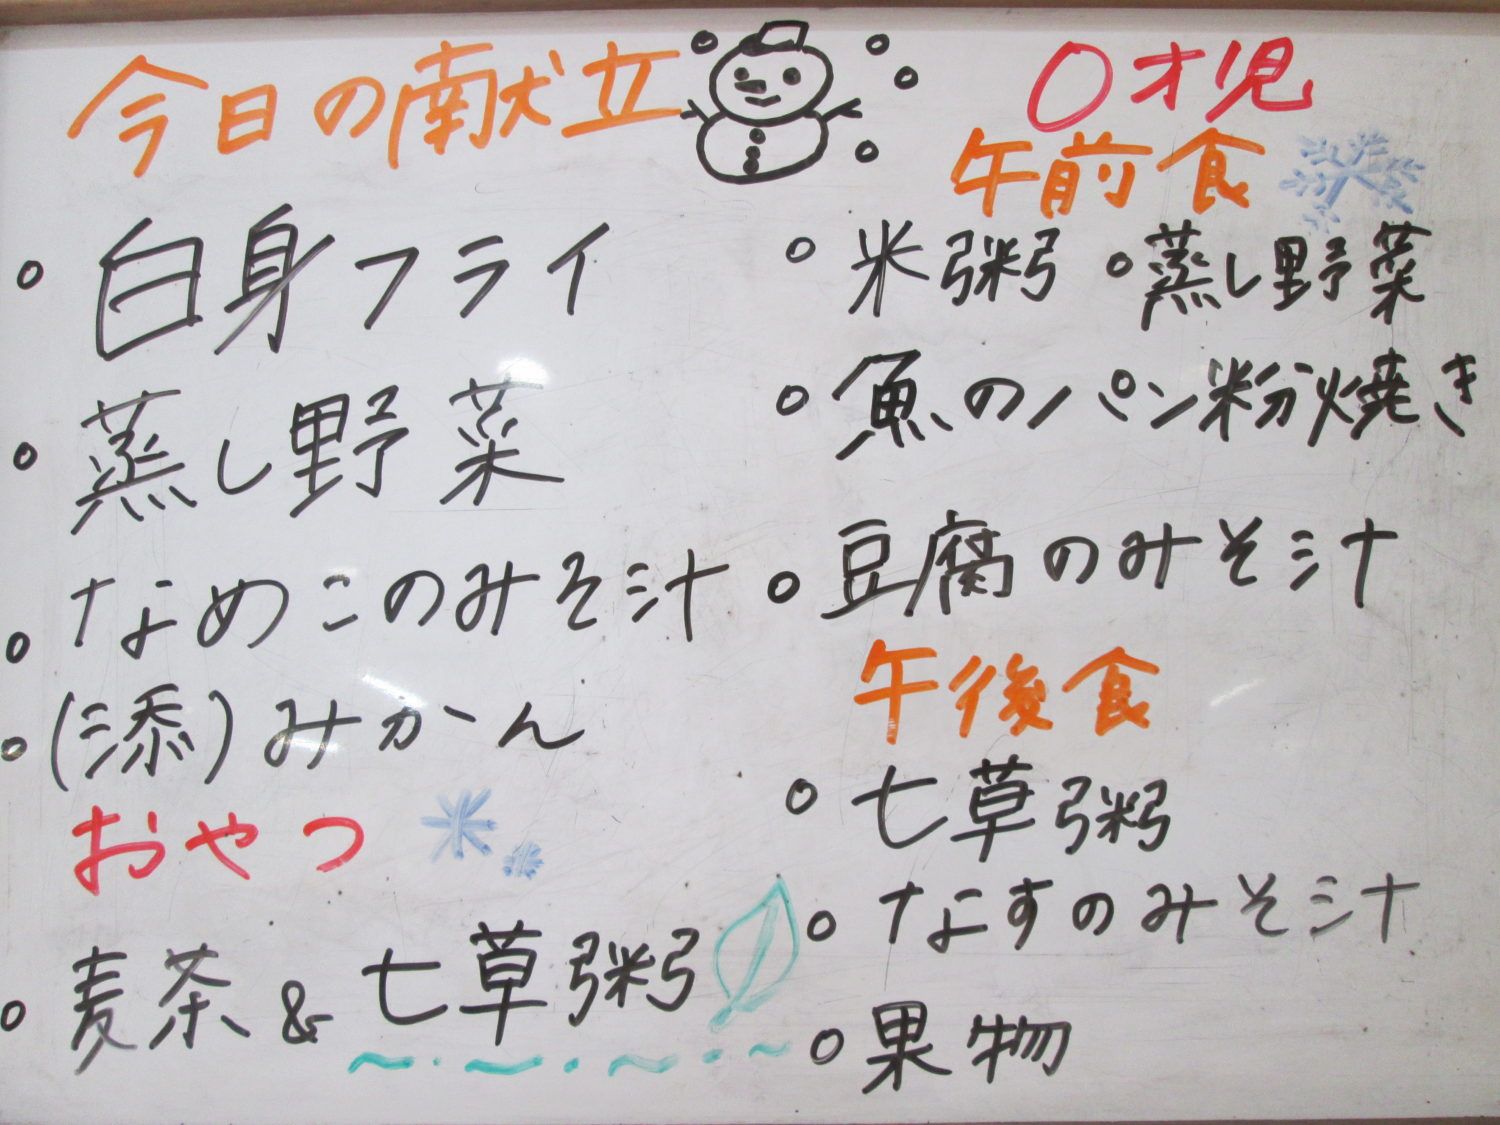 今日の献立
○白身フライ
○蒸し野菜
○なめこのみそ汁
○(添)みかん
おやつ
○麦茶&七草粥
0才児
午前食
○米粥 ○蒸し野菜
○魚のパン粉焼き
○豆腐のみそ汁
午後食
○七草粥
○なすのみそ汁
○果物